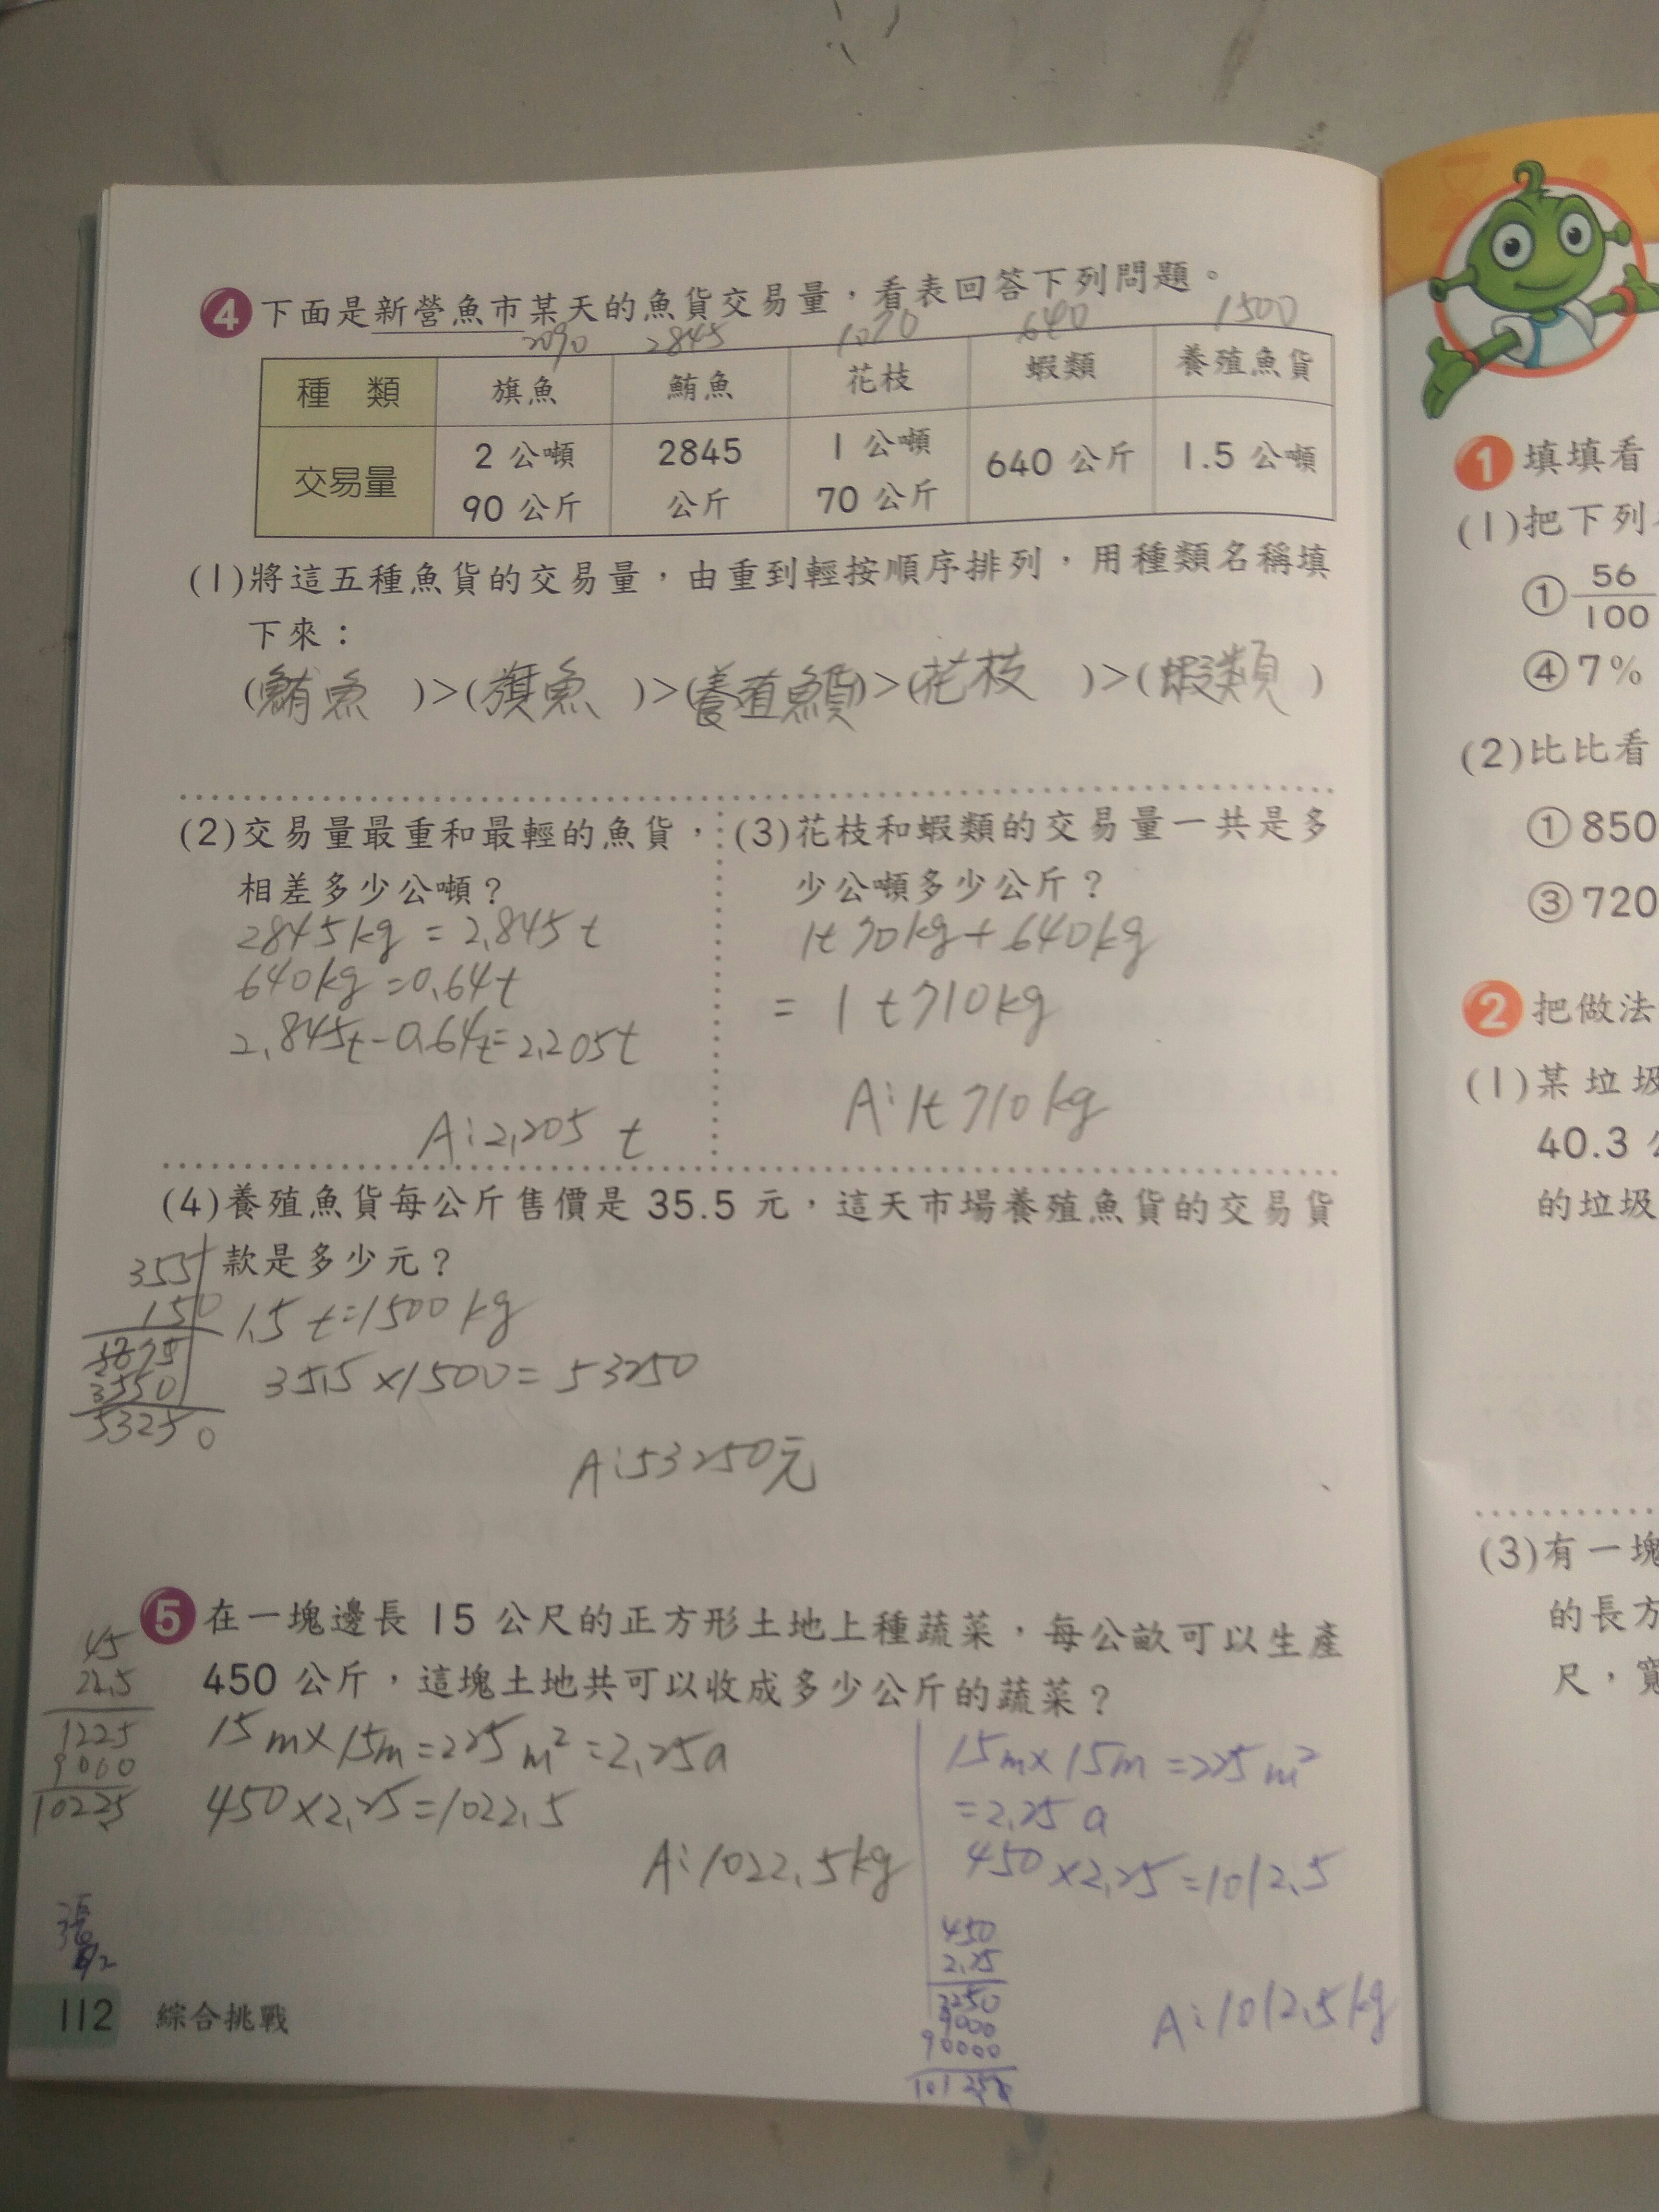 4 下面是新營魚市某天的魚貨交易量，看表回答下列問題。
2090 2845 1070 640 1500
種 類 旗魚 鮪魚 花枝 蝦類 養殖魚貨
交易量 2 公噸 90 公斤 2845 公斤 1 公噸 70 公斤 640 公斤 1.5 公噸
(1)將這五種魚貨的交易量，由重到輕按順序排列，用種類名稱填
下來：
(鮪魚)>(旗魚)>(養殖魚貨)>(花枝)>(蝦類)
(2)交易量最重和最輕的魚貨，
相差多少公噸？
2845kg = 2.845t
640kg = 0.64t
2.845t-0.64t=2.205t
A:2.205 t
(3)花枝和蝦類的交易量一共是多
少公噸多少公斤？
1t 70kg + 640kg
= 1t710kg
A:1t 710kg
(4)養殖魚貨每公斤售價是 35.5 元，這天市場養殖魚貨的交易貨
款是多少元？
1.5 t=1500kg
35.5×1500=53250
A:53250元
355
150
3550
53250
5 在一塊邊長 15 公尺的正方形土地上種蔬菜，每公畝可以生產
450 公斤，這塊土地共可以收成多少公斤的蔬菜？
15m×15m=225m²=2.25a
450×2.25=1022.5
A:1022.5kg
45
1225
9000
10225
15m×15m=225m²
=2.25a
450×2.25=1012.5
450
2.25
9000
90000
A:1012.5kg
112 綜合挑戰
1 填填看
(1)把下列
① 56/100
④ 7%
(2)比比看
① 850
③ 720
2 把做法
(1)某垃圾
40.3
的垃圾
(3)有一塊
的長方
尺，寬